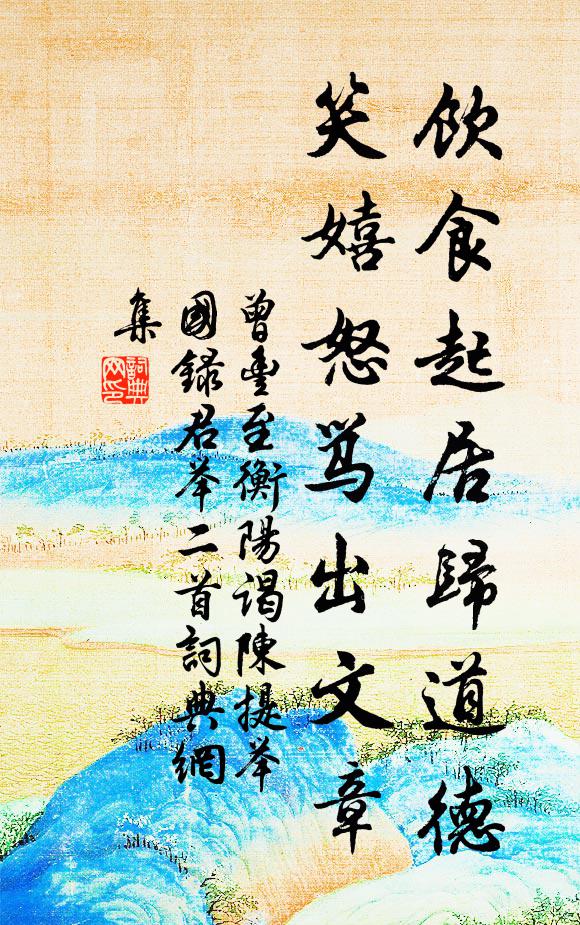 飲食起居歸道德
笑嬉怒骂出文章
曾豊至衡陽謁陳提举
國録君举二首詞典網
集
詞典网印